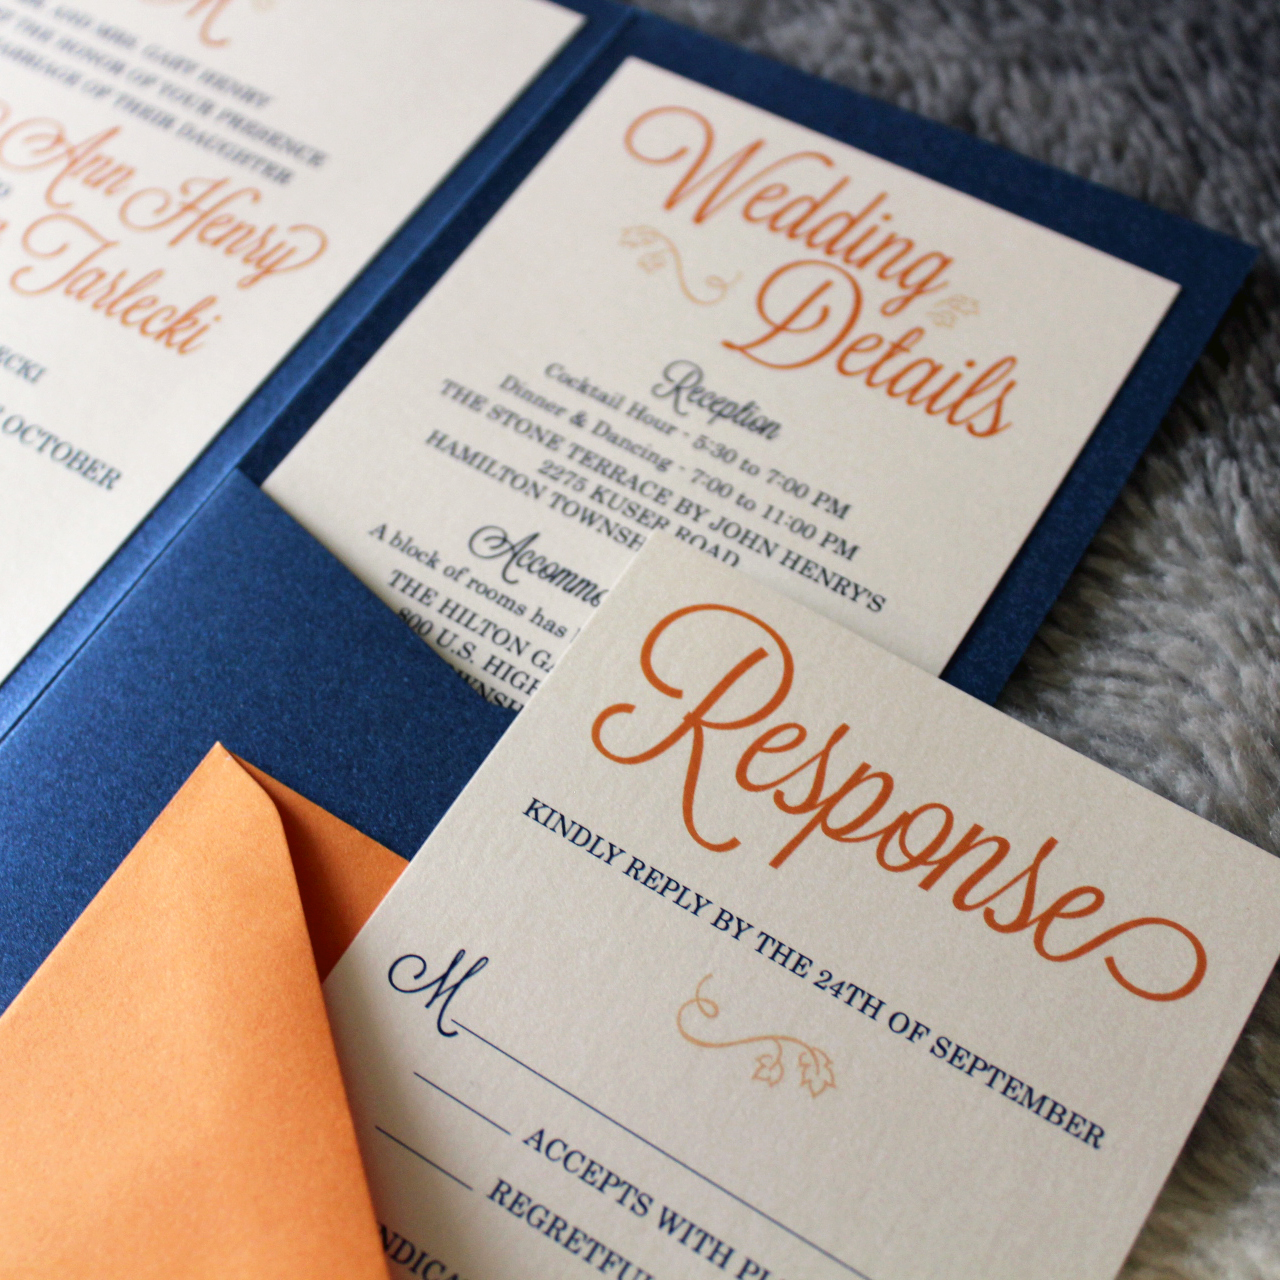 AND MRS. GARY HENRY
THE HONOR OF YOUR PRESENCE
MARRIAGE OF THEIR DAUGHTER
Ann Henry
Tarlecki
OCTOBER
Wedding
Details
Reception
Cocktail Hour - 5:30 to 7:00 PM
Dinner & Dancing - 7:00 to 11:00 PM
THE STONE TERRACE BY JOHN HENRY'S
2275 KUSER ROAD
HAMILTON TOWNSH
Accommo
A block of rooms has
THE HILTON GA
800 U.S. HIGH
Response
KINDLY REPLY BY THE 24TH OF SEPTEMBER
M
ACCEPTS WITH PL
REGRETFU
NDICA